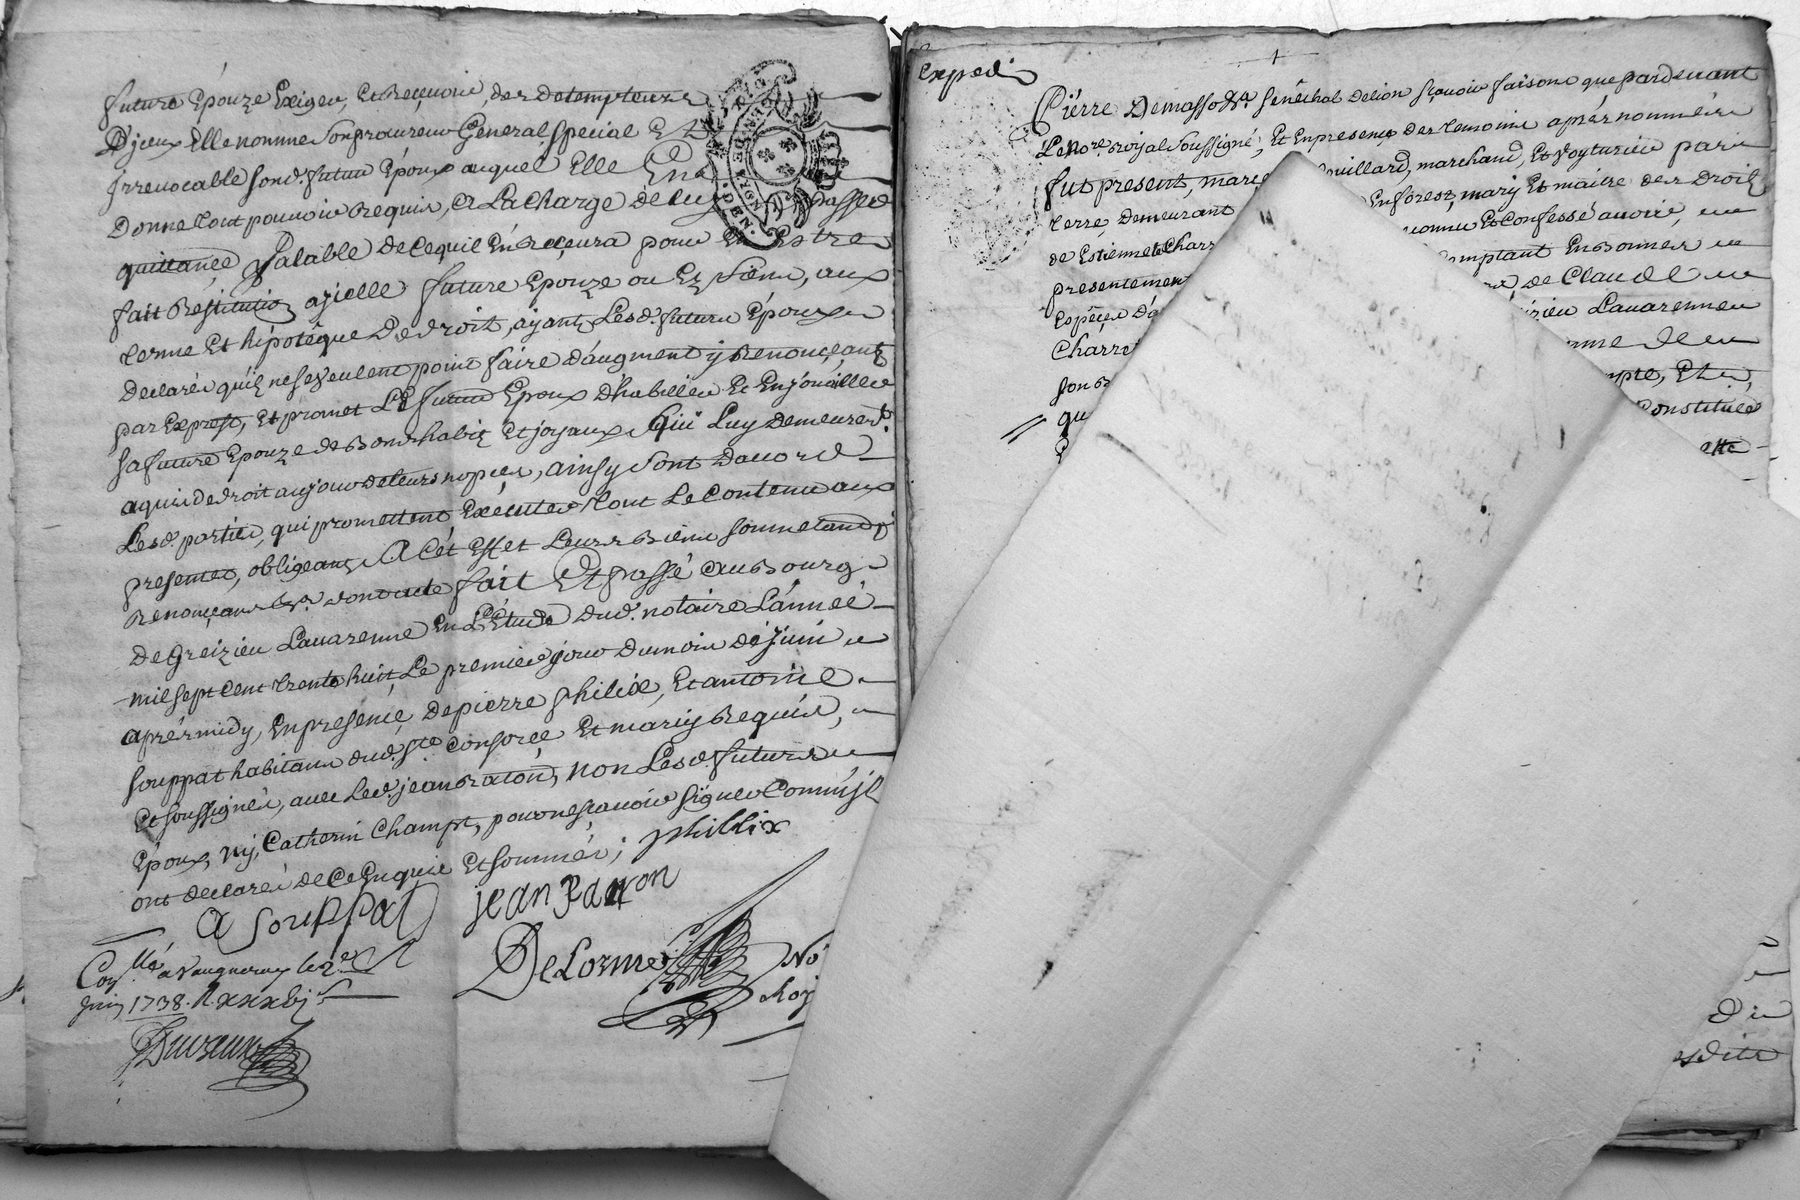 future Epouze Exiger, Et Reçevoir, des detempteurs
D'jceux Elle nomme son procureur General, special Et
jrrevocable son d. futur Epoux auquel Elle En
Donne tout pouvoir Requis, A La charge de luy passer
quittançe valable de Ce qu'il En Reçevra pour En Estre
fait Restitution a jcelle future Epouze ou Ez siens, aux
terme Et hipotêque De droit, ayant Lesd. futurs Epoux
declaréz qu'ilz ne se veulent point faire d'augment y Renonçeant
par Exprest, Et promet Le futur Epoux d'habiller Et Enjoüailler
sa future Epouze de Bons habitz Et joyaux Qui Luy demeurert
aquis de droit au jour de leurs nopçes, ainsy sont d'acord
Lesd. parties, qui promettent Exécuter tout Le Contenu aux
presentes, obligeant A Cét Effet Leurs Biens soumetand
Renonçans dont acte fait Et Passé au Bourg
De Greizieu Lavarenne En L'Etude dud. notaire L'année
mil sept Cent trente huit, Le premier jour du mois de Juin
aprés midy, En presençe de pierre philix, Et antoine
souppat habitans dud. Ste Consorçe Et mariy Requis,
Et soussignés, avec Led. jean Raton, non Lesd. futurs
Epoux, ny Catherin Champt, pour ne sçavoir signer Comm'jl
ont declaréz de Ce Enquis Et sommés;
phillix
A souppat
jean Raton
DeLorme
No
Roy
Con.llé a Vaugneray le 2e
Juin 1738. R xxxvj s
GEN DE LION
Exped
Pierre Demasso Sénéchal de Lion sçavoir faisons que pardevant
Le Nore. Royal soussigné, Et En presençe des temoins aprés nommés
fut present, marc ouillard, marchand, Et Voyturier par
terre, Demeurant En forez, mary Et maitre des Droitz
de Estiennette Charr connu Et Confessé avoir,
presentement Comptant En Bonnes
Espéçes d'a de Claude
Charr zieu Lavarenne
son mme de
qu mpte, Et
Constituée
ette
De
esdits